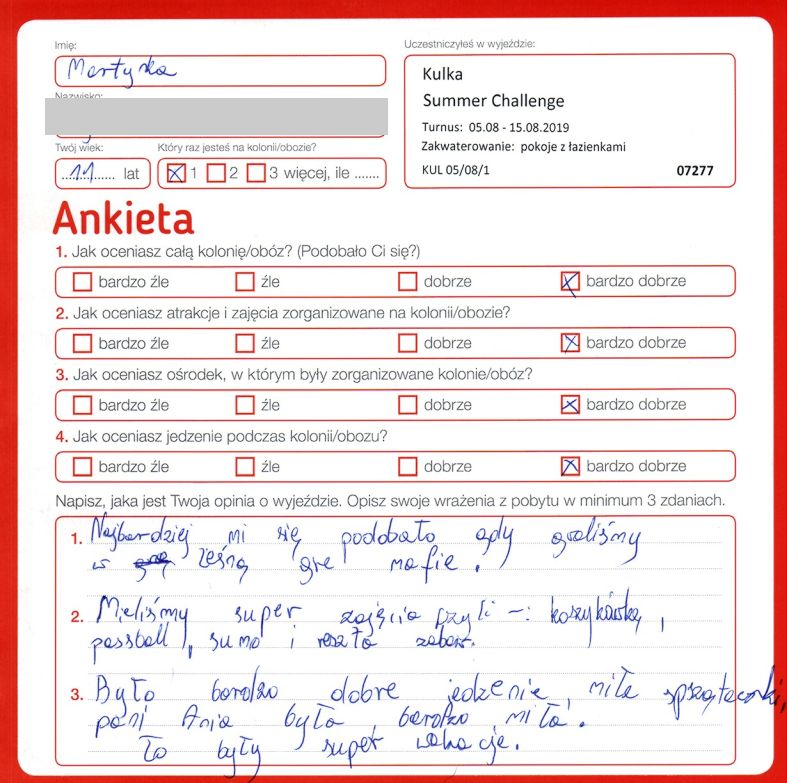 Imię:
Martynka
Nazwisko:
Twój wiek:
11 lat
Który raz jesteś na kolonii/obozie?
1 2 3 więcej, ile .......
Uczestniczyłeś w wyjeździe:
Kulka
Summer Challenge
Turnus: 05.08 - 15.08.2019
Zakwaterowanie: pokoje z łazienkami
KUL 05/08/1 07277
Ankieta
1. Jak oceniasz całą kolonię/obóz? (Podobało Ci się?)
bardzo źle źle dobrze bardzo dobrze
2. Jak oceniasz atrakcje i zajęcia zorganizowane na kolonii/obozie?
bardzo źle źle dobrze bardzo dobrze
3. Jak oceniasz ośrodek, w którym były zorganizowane kolonie/obóz?
bardzo źle źle dobrze bardzo dobrze
4. Jak oceniasz jedzenie podczas kolonii/obozu?
bardzo źle źle dobrze bardzo dobrze
Napisz, jaka jest Twoja opinia o wyjeździe. Opisz swoje wrażenia z pobytu w minimum 3 zdaniach.
1. Najbardziej mi się podobało gdy graliśmy
w leśną grę mafie.
2. Mieliśmy super zajęcia czyli -: koszykówka,
passball, sumo i reszta zabaw.
3. Było bardzo dobre jedzenie, miłe sprzątaczki,
pani Ania była bardzo miła.
to były super wakacje.